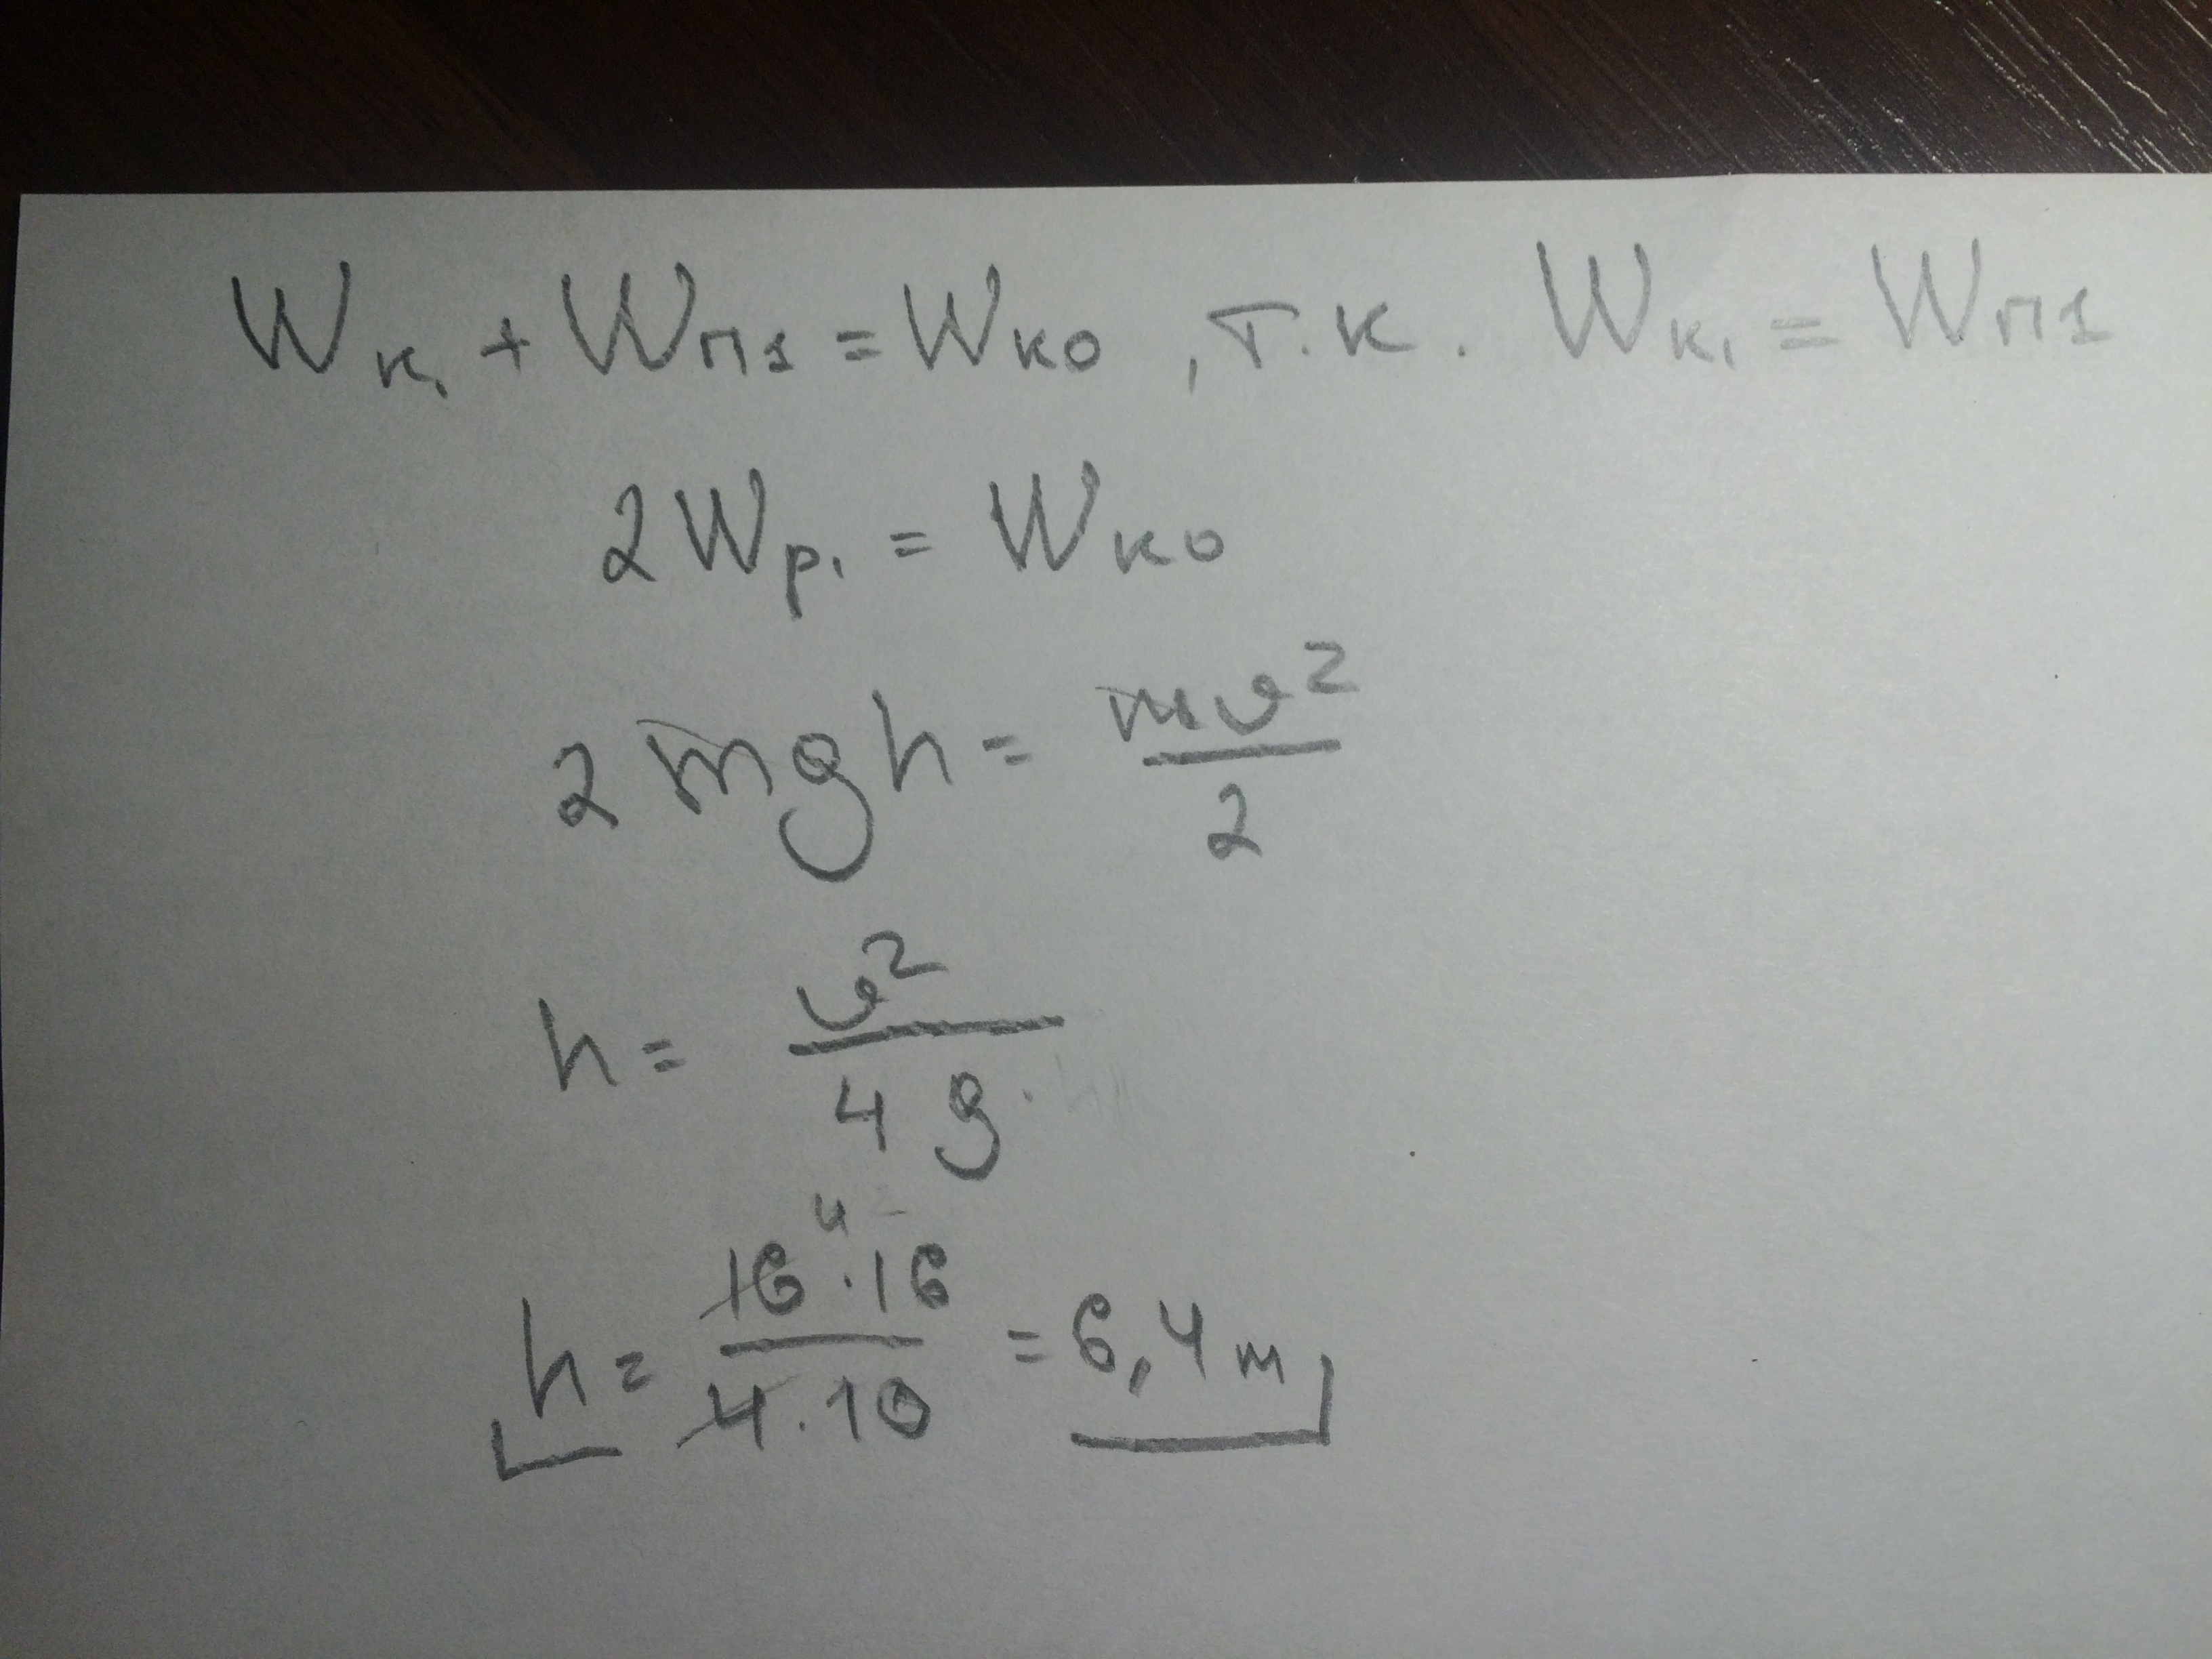 Wк₁ + Wп1 = Wк0 , т.к. Wк₁ = Wп1
2Wp₁ = Wк0
2mgh = mv²/2
h = v²/4g
4
h = 16·16/4·10 = 6,4 м